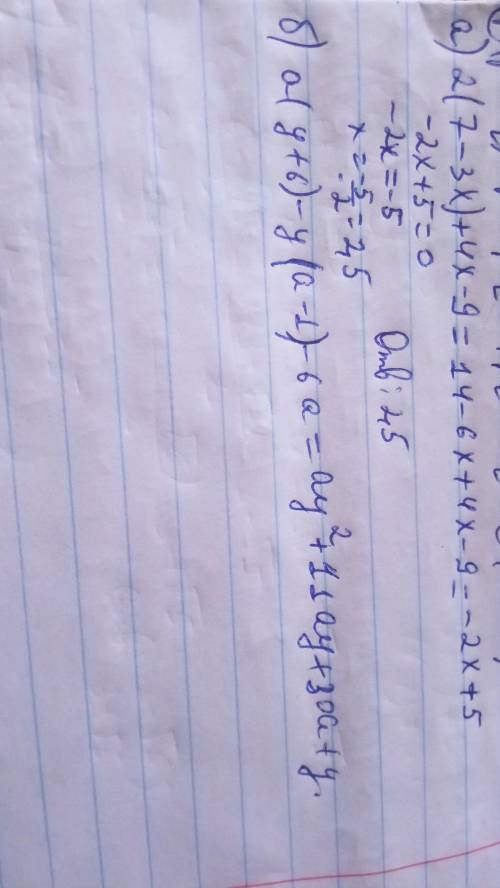 а) 2(7-3x)+4x-9=14-6x+4x-9=-2x+5
-2x+5=0
-2x=-5
x=-5/-2=2,5 Отв: 2,5
б) a(y+6)-y(a-1)-6a=ay²+11ay+30a+y.